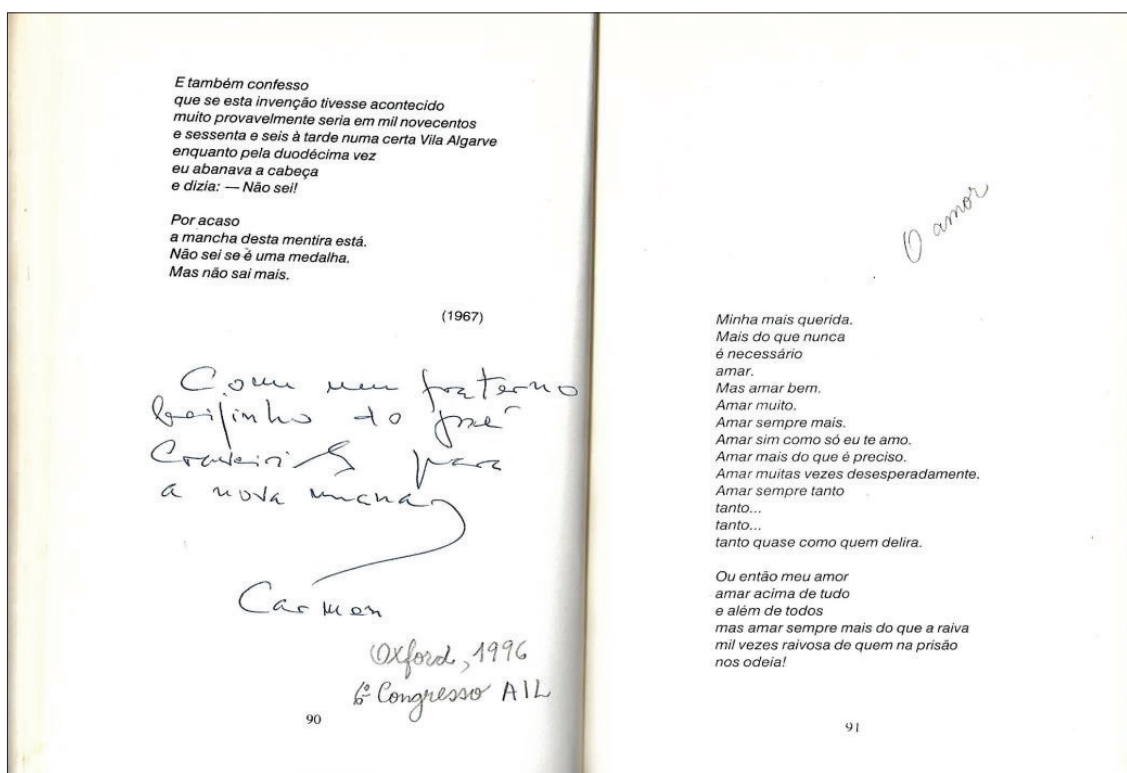 E também confesso
que se esta invenção tivesse acontecido
muito provavelmente seria em mil novecentos
e sessenta e seis à tarde numa certa Vila Algarve
enquanto pela duodécima vez
eu abanava a cabeça
e dizia: — Não sei!
Por acaso
a mancha desta mentira está.
Não sei se é uma medalha.
Mas não sai mais.
(1967)
Com um fraterno
beijinho do José
Craveirinha para
a nova
Carmen
Oxford, 1996
6º Congresso AIL
90
O amor
Minha mais querida.
Mais do que nunca
é necessário
amar.
Mas amar bem.
Amar muito.
Amar sempre mais.
Amar sim como só eu te amo.
Amar mais do que é preciso.
Amar muitas vezes desesperadamente.
Amar sempre tanto
tanto...
tanto...
tanto quase como quem delira.
Ou então meu amor
amar acima de tudo
e além de todos
mas amar sempre mais do que a raiva
mil vezes raivosa de quem na prisão
nos odeia!
91